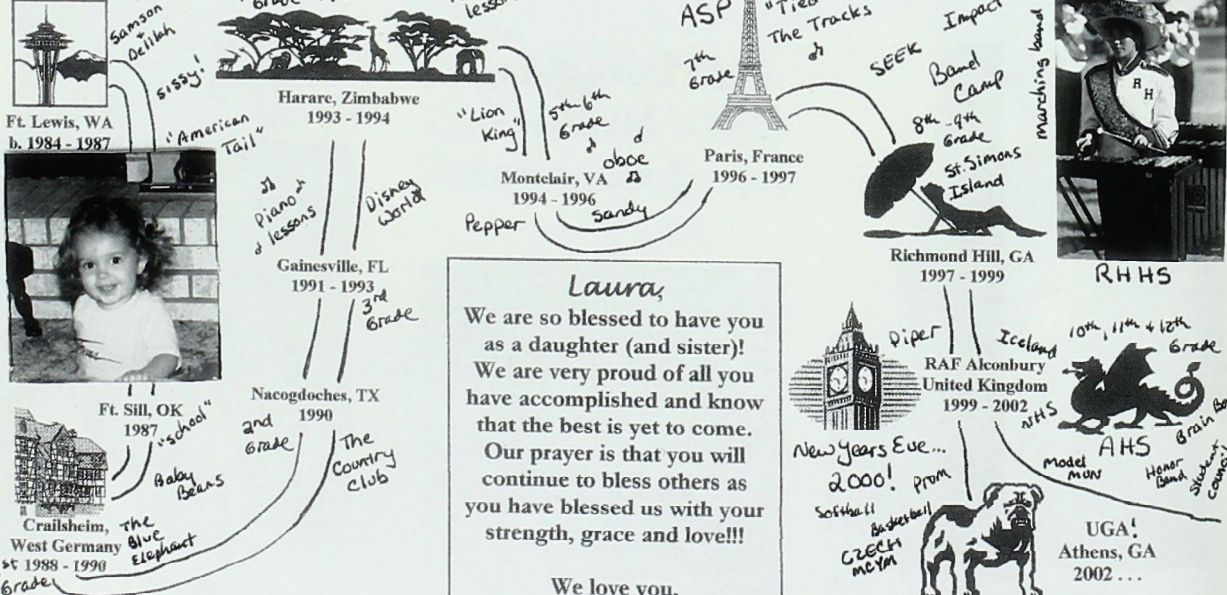 Samson
+
Delilah
Sissy!
Ft. Lewis, WA
b. 1984 - 1987
"American
Tail"
Grade
lessons
Harare, Zimbabwe
1993 - 1994
"Lion
King"
5th-6th
Grade
oboe
Montclair, VA
1994 - 1996
Pepper
Sandy
ASP
7th
Grade
"Tied
The Tracks
Paris, France
1996 - 1997
SEEK
Impact
Band
Camp
8th-9th
Grade
St. Simons
Island
Richmond Hill, GA
1997 - 1999
marching band
R H
RHHS
piano
lessons
Disney
World
Gainesville, FL
1991 - 1993
3rd
Grade
Nacogdoches, TX
1990
2nd
Grade
The
Country
Club
Ft. Sill, OK
1987
"School"
Baby
Beans
Crailsheim,
West Germany
1988 - 1990
The
Blue
Elephant
st
Grade
Laura,
We are so blessed to have you
as a daughter (and sister)!
We are very proud of all you
have accomplished and know
that the best is yet to come.
Our prayer is that you will
continue to bless others as
you have blessed us with your
strength, grace and love!!!
We love you,
Piper
Iceland
RAF Alconbury
United Kingdom
1999 - 2002
10th, 11th + 12th
Grade
NHS
AHS
Brain Bo
Model
MUN
Honor
Band
Student
Counci
New Years Eve...
2000!
Prom
Softball
Basketball
CZECH
MCYM
UGA!
Athens, GA
2002 . . .